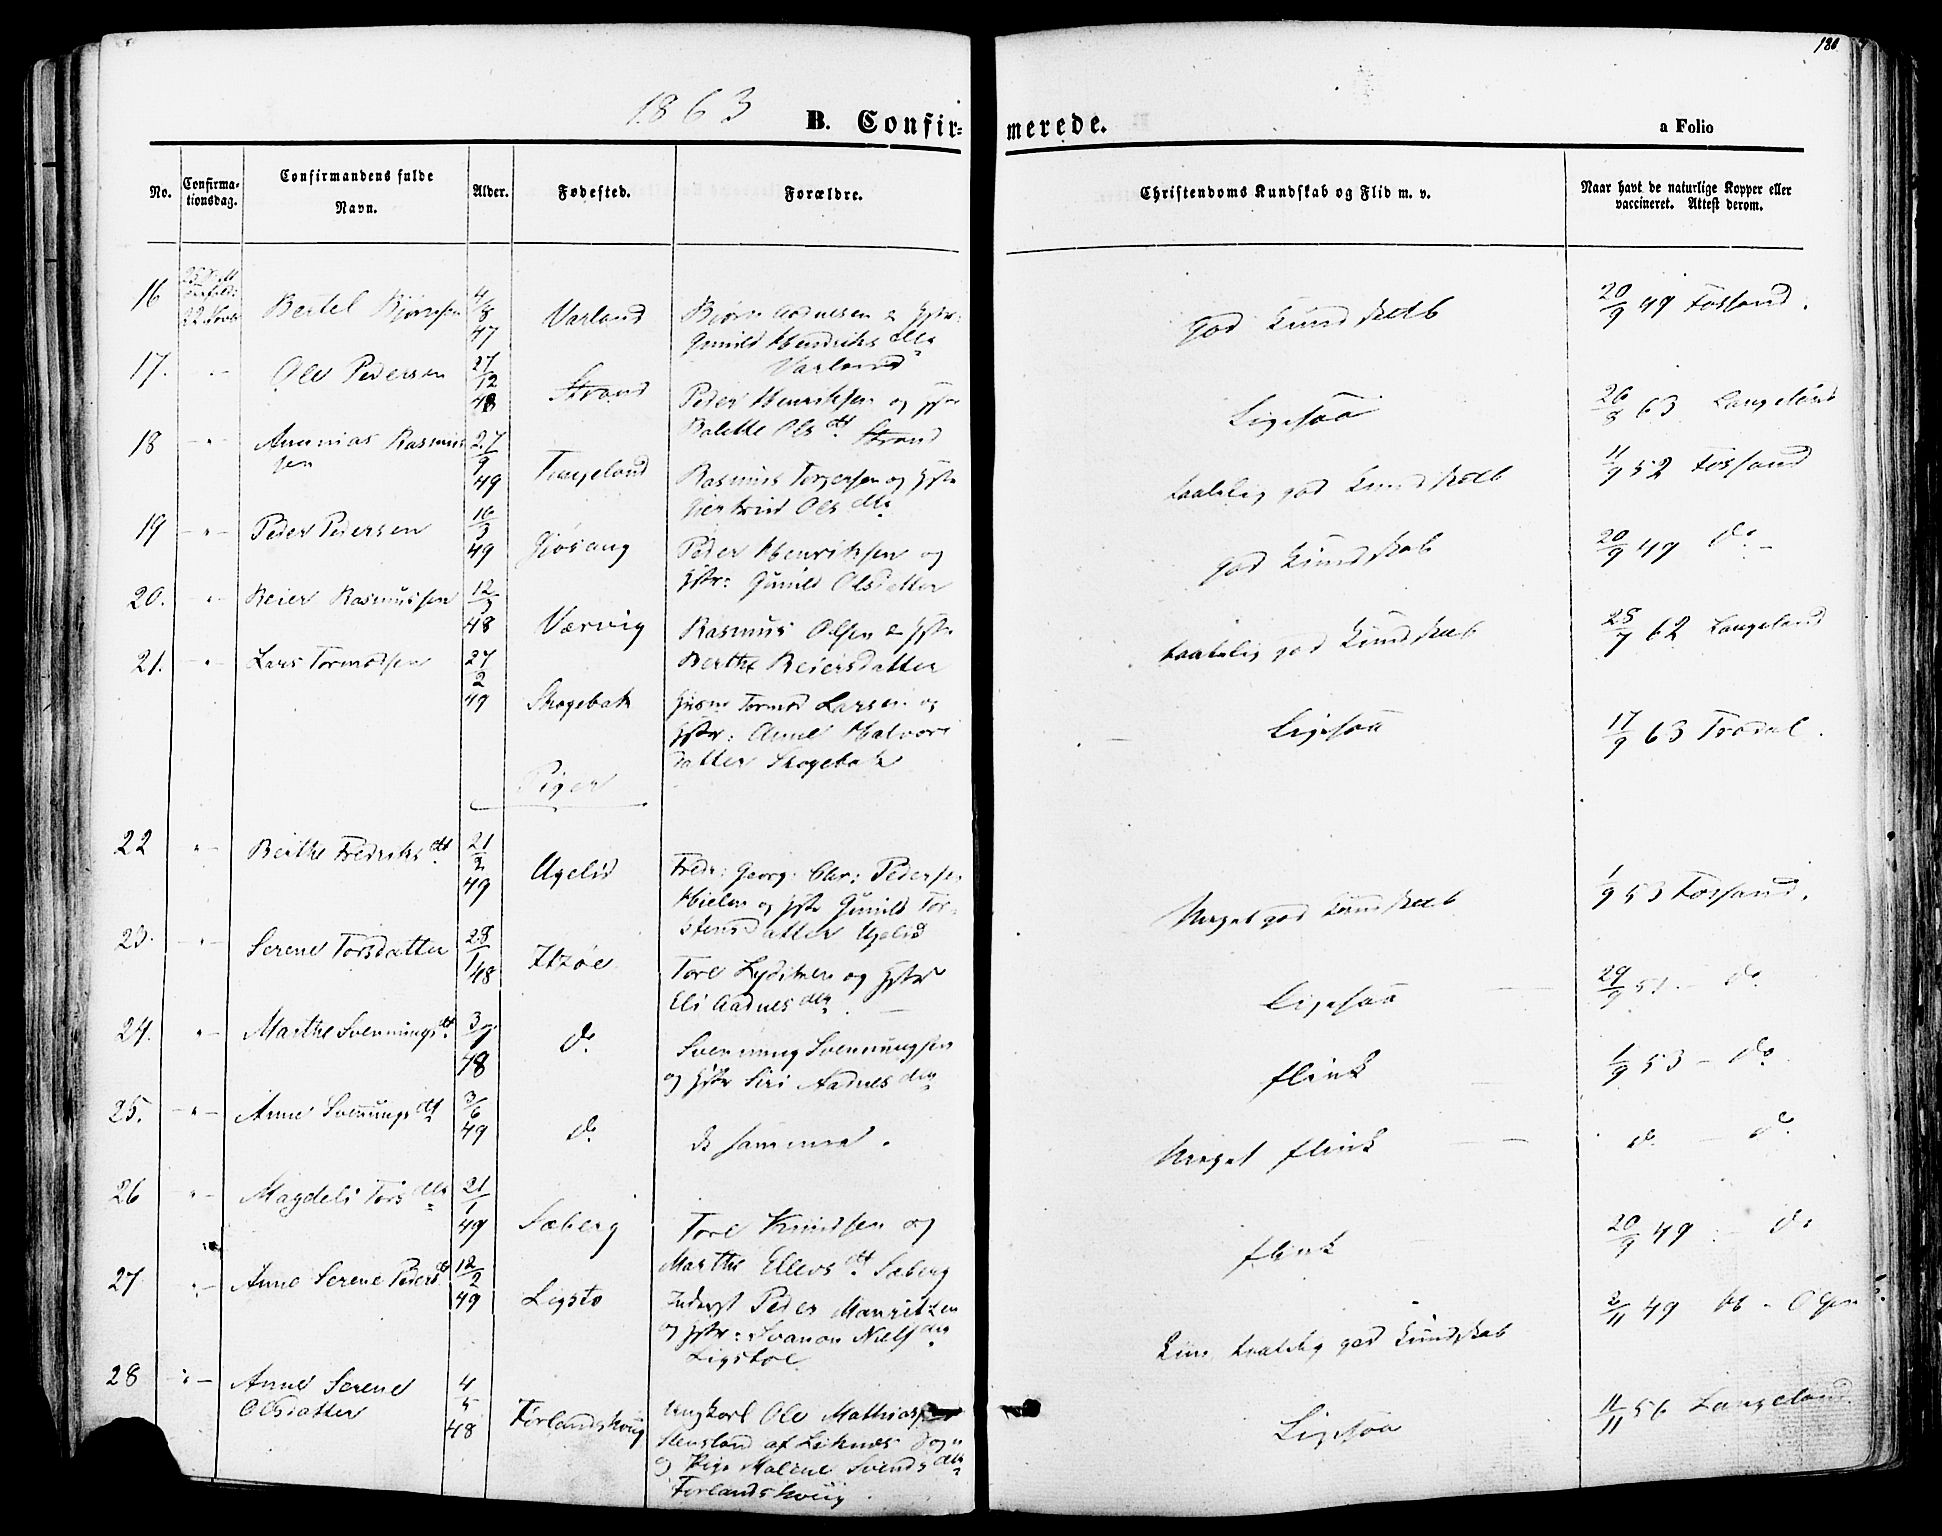 180
1863
B. Confir-
merede.
a Folio
No.
Confirma-
tionsdag.
Confirmandens fulde
Navn.
Alder.
Fødested.
Forældre.
Christendoms Kundskab og Flid m. v.
Naar havt de naturlige Kopper eller
vaccineret. Attest derom.
16
Bertel Bjørnsen
4/8 47
Varland
Bjørn Aadnesen & Hstr:
Gunild Hendriksdtr
Varland
god Kundskab
20/9 49 Fossand.
17.
Ole Pedersen
27/12 48
Strand
Peder Henriksen og Hstr
Bolette Olsdt Strand
Ligesaa
26/8 63 Langeland
18
Ananias Rasmus
sen
27/9 49
Tungeland
Rasmus Torgersen og Hstr
Giertrud Olsdtr
taalelig god Kundskab
11/9 52 Fossand
19
Peder Pedersen
16/3 49
Gjøsang
Peder Henriksen og
Hstr: Gunild Olsdatter
god Kundskab
20/9 49 do
20.
Reier Rasmussen
12/3 48
Værvig
Rasmus Olsen & Hstr
Berthe Reiersdatter
taalelig god Kundskab
25/7 62 Langeland
21.
Lars Tormodsen
27/2 49
Skogebak
Husm Tormod Larsen og
Hstr: Anne Halvors
datter Skogebak
Ligesaa
17/9 63 Trodal.
Piger
22
Berthe Fredriksdt
21/2 49
Ugelid
Fredr: Georg: Chr: Pedersen
Hielm og Hstr Gunild Tor-
stensdatter Ugelid
Meget god Kundskab
1/9 53 Fossand.
23.
Serene Torsdatter
28/1 48
Itzøe
Tore Lydiksen og Hstr
Eli Aadnesdtr
Ligesaa
29/9 51 - do
24.
Marthe Svenningsdt
48
do
Svenning Svenningsen
og Hstr Siri Aadnesdtr
flink
1/9 53 - do
25.
Anne Svenningsdt
3/6 49
do
De samme.
Meget flink
do - do
26
Magdeli Torsdtr
21/1 49
Sæberg
Tore Knudsen og
Marthe Ellevsdt Sæberg
flink
20/9 49 - do
27
Anne Serene Pedersdt
12/2 49
Ligstø
Inderst Peder Mauritzen
og Hstr: Svanau Nielsdtr
Ligstøe
Kun taalelig god Kundskab
2/11 49 - Olsen
28
Anne Serene
Olsdatter
4/5 48
Førlandskvig
Ungkarl Ole Mathiassen
Stensland af Liknes Sogn
og Pige Malene Svendsdtr
Førlandskvig
Ligesaa
11/11 56 Langeland